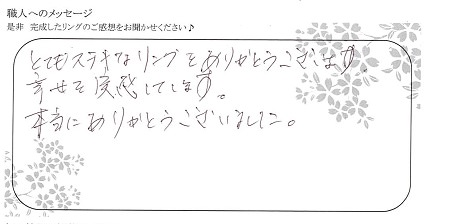 職人へのメッセージ
是非 完成したリングのご感想をお聞かせください♪
とてもステキなリングをありがとうございます。
幸せを実感しています。
本当にありがとうございました。